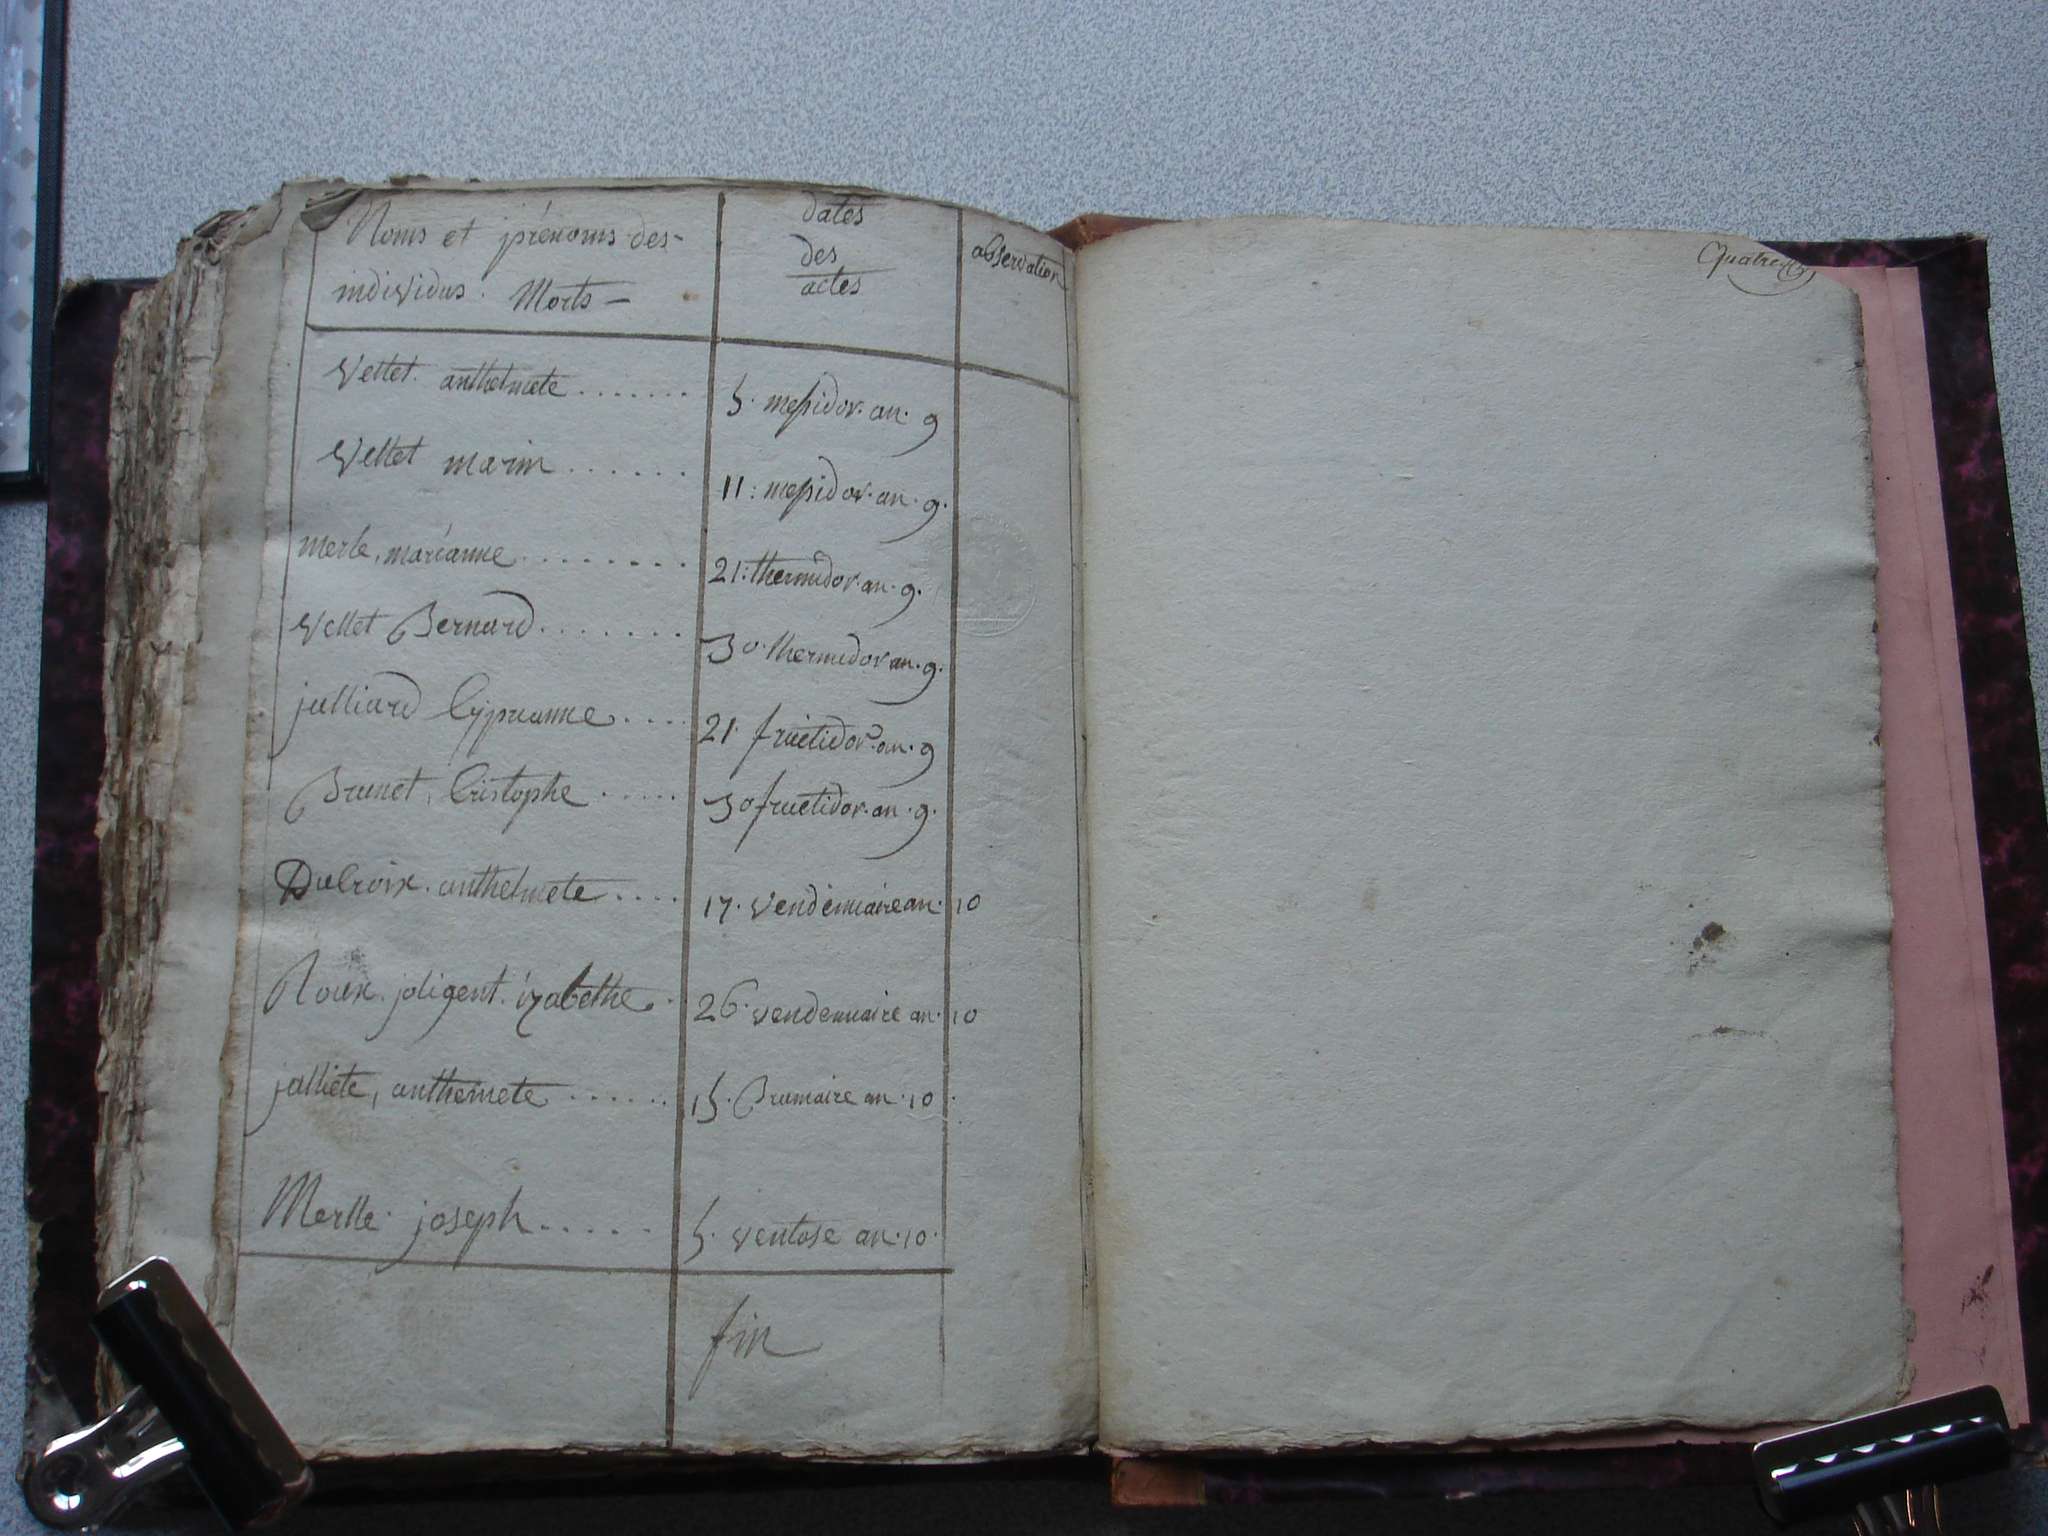 Noms et prénoms des-
individus. Morts -
dates
des
actes
observation
Quatre
Vettet. anthelmete ....... 5. messidor. an. 9
Vettet marin ...... 11: messidor. an. 9.
merle, marianne ........ 21: thermidor. an. 9.
Vettet Bernard ....... 30. thermidor an. 9.
julliard Cyprianne .... 21. fructidor. an. 9
Brunet, Cristophe ..... 30 fructidor. an. 9.
DuCroix. anthelmete .... 17. Vendémiaire an. 10
Roux. joligent. izabethe . 26. vendemiaire an. 10
julliete, anthemete ...... 15. Brumaire an. 10.
Merlle. joseph ..... 5. ventose an. 10.
fin